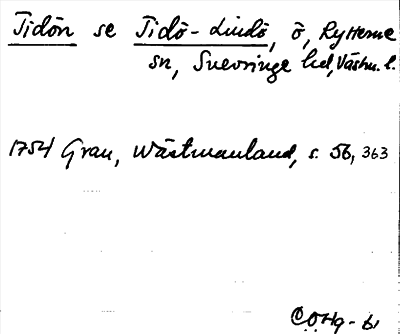 Tidön se Tidö-Lindö, ö, Rytterne
sn, Snevringe hd, Västm. l.
1754 Grau, Wästmanland, s. 56, 363
C.O.Hg-61